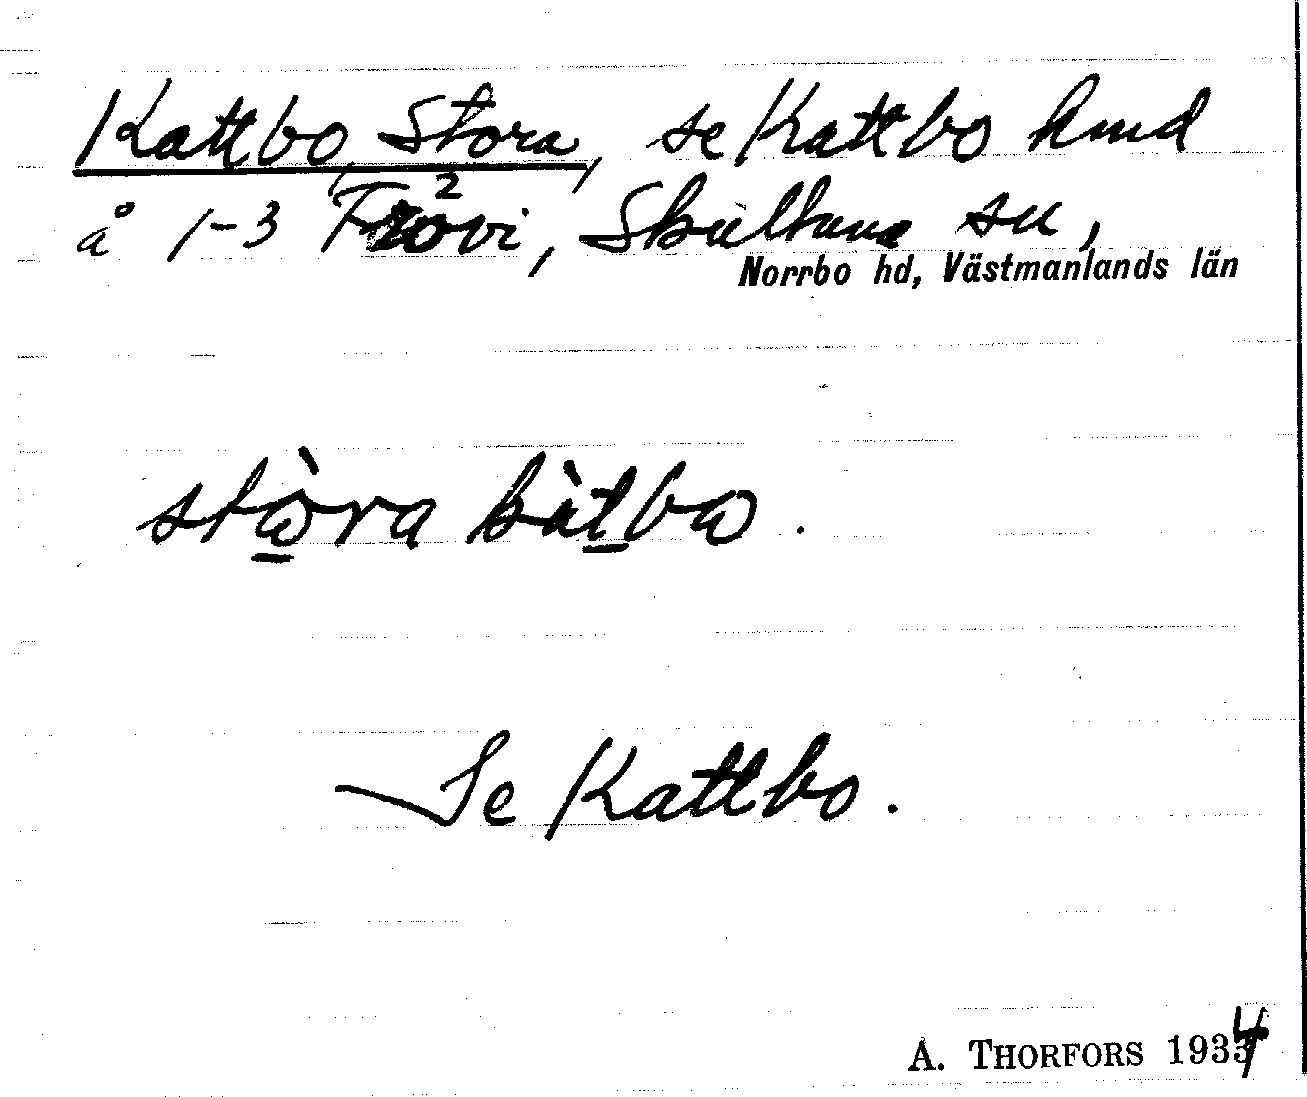 Kattbo, Stora, se Kattbo hmd
å 1-3 Frövi², Skultuna sn,
Norrbo hd, Västmanlands län
stòra kàtbω.
Se Kattbo.
A. THORFORS 1934